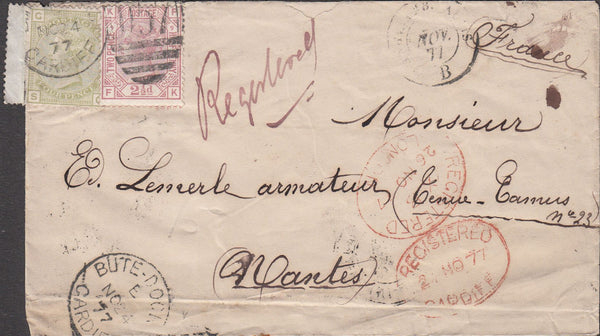 NO 24
77
CARDIFF
2½d
F K
S G
NOV.
77
B
France
Registered
Monsieur
Ed. Lemerle armateur (Tenue-Camus
nº 23)
Nantes
REGISTERED
REGISTERED
NO 77
CARDIFF
BUTE-DOCK
E
NO 24
77
CARDIFF